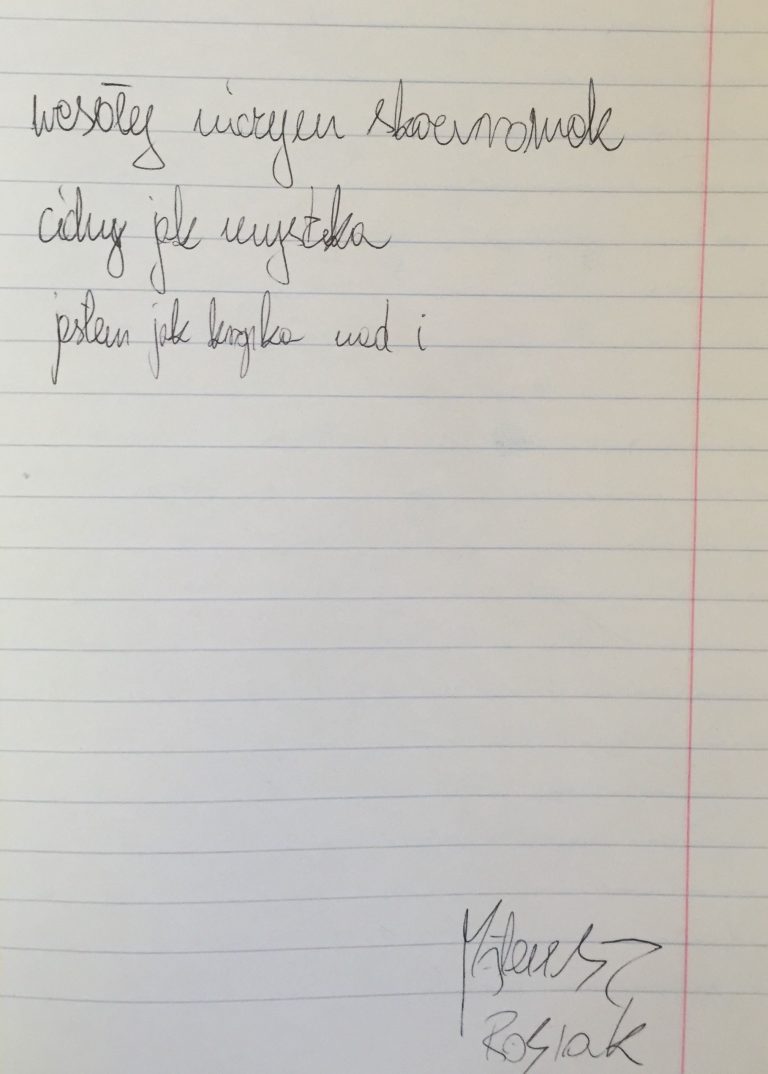 wesoły niczym skowronek
cichy jak myszka
jestem jak kropka nad i
Mateusz
Rosiak